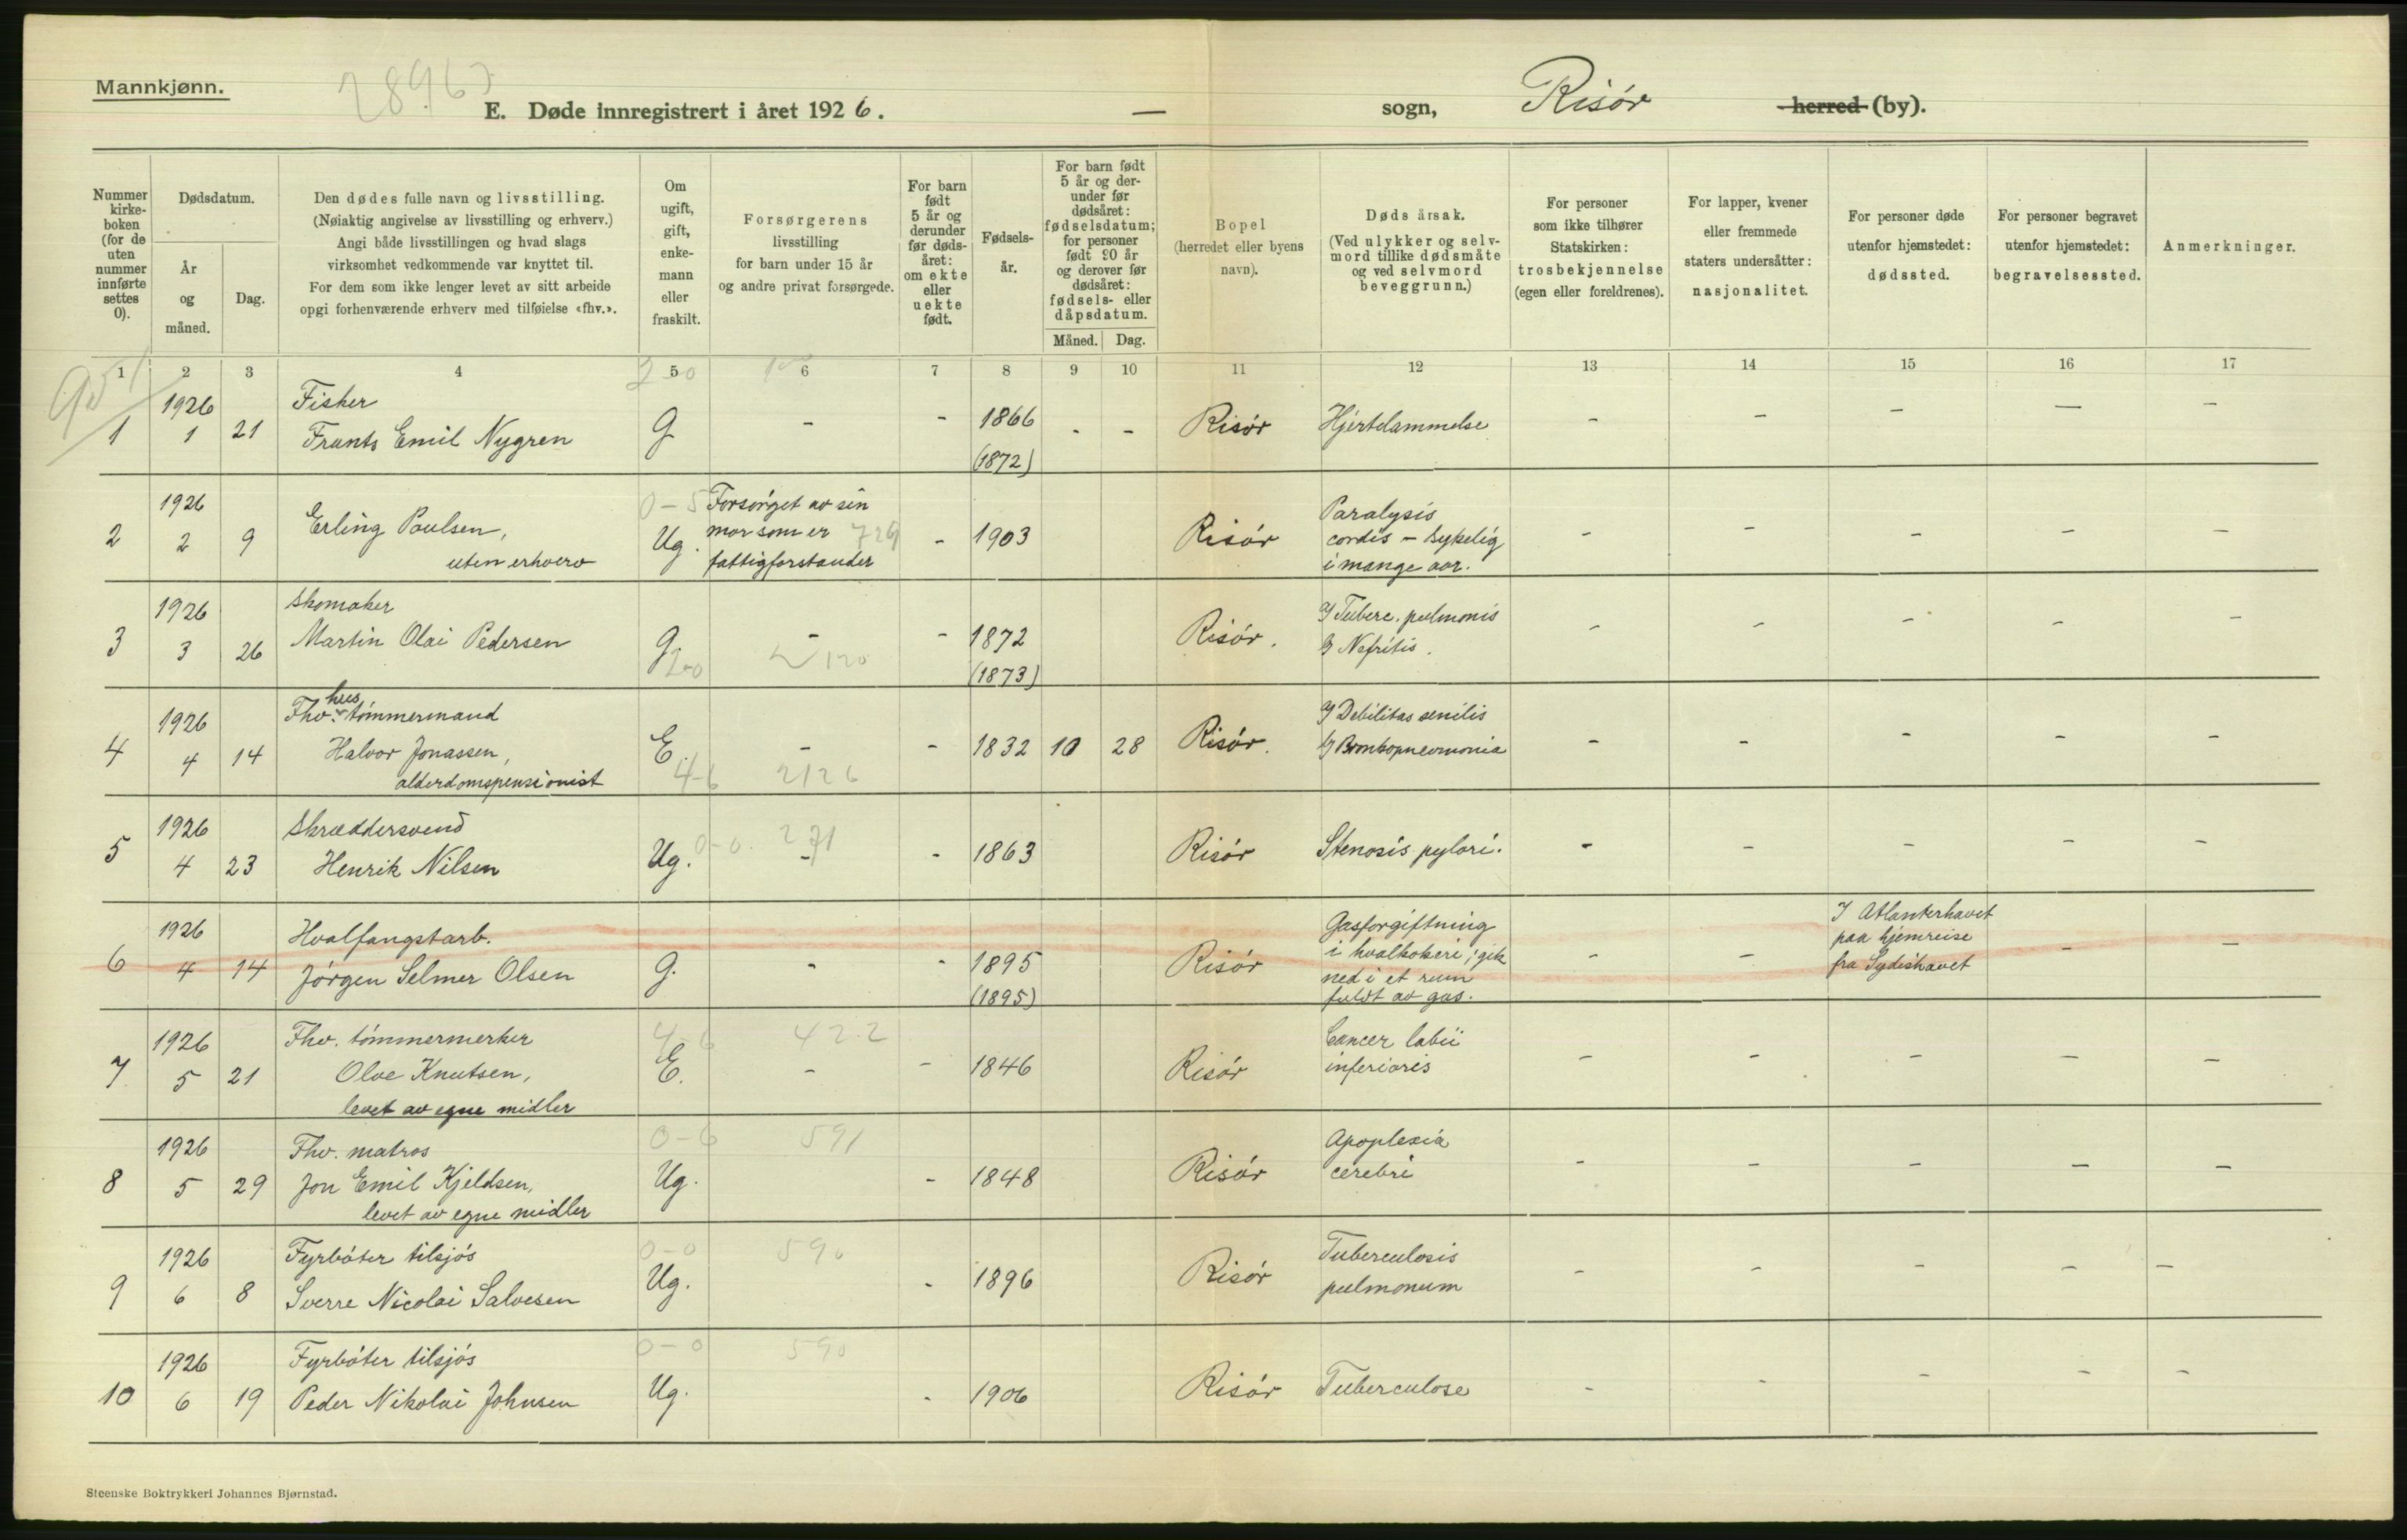 Mannkjønn.
E. Døde innregistrert i året 1926. — sogn, Risør herred (by).
Nummer kirkeboken (for de uten nummer innførte settes 0).
Dødsdatum.
År og måned.
Dag.
Den dødes fulle navn og livsstilling.
(Nøiaktig angivelse av livsstilling og erhverv.)
Angi både livsstillingen og hvad slags
virksomhet vedkommende var knyttet til.
For dem som ikke lenger levet av sitt arbeide
opgi forhenværende erhverv med tilføielse «fhv.».
Om ugift, gift, enkemann eller fraskilt.
Forsørgerens
livsstilling
for barn under 15 år
og andre privat forsørgede.
For barn født 5 år og derunder før dødsåret: om ekte eller uekte født.
Fødselsår.
For barn født 5 år og derunder før dødsåret: fødselsdatum; for personer født 90 år og derover før dødsåret: fødsels- eller dåpsdatum.
Måned. Dag.
Bopel
(herredet eller byens
navn).
Dødsårsak.
(Ved ulykker og selvmord tillike dødsmåte og ved selvmord beveggrunn.)
For personer
som ikke tilhører
Statskirken:
trosbekjennelse
(egen eller foreldrenes).
For lapper, kvener
eller fremmede
staters undersåtter:
nasjonalitet.
For personer døde
utenfor hjemstedet:
dødssted.
For personer begravet
utenfor hjemstedet:
begravelsessted.
Anmerkninger.
1 2 3 4 5 6 7 8 9 10 11 12 13 14 15 16 17
1 1926 1 21 Fisker
Frants Emil Nygren G. - - 1866 (1872) - - Risør Hjertelammelse - - - — -
2 1926 2 9 Erling Poulsen,
uten erhverv Ug. 0-5 Forsørget av sin
mor som er 729
fattigforstander - 1903 Risør Paralysis
cordis - sykelig
i mange aar. - - - - -
3 1926 3 26 Skomaker
Martin Olai Pedersen G. - - 1872 (1873) Risør. a/ Tuberc. pulmonis
b/ Nefritis. - - - - -
4 1926 4 14 Fhv. hustømmermand
Halvor Jonassen,
alderdomspensionist E. 4-6 - 2126 - 1832 10 28 Risør. a/ Debilitas senilis
b/ Bronkopneumonia - - - - -
5 1926 4 23 Skræddersvend
Henrik Nilsen Ug. 0-0 271 - - 1863 Risør Stenosis pylori. - - - - -
6 1926 4 14 Hvalfangstarb.
Jørgen Selmer Olsen G. - - 1895 (1895) Risør Gasforgiftning
i hvalkokeri; gik
ned i et rum
fuldt av gas. - - I Atlanterhavet
paa hjemreise
fra Sydishavet - -
7 1926 5 21 Fhv. tømmermerker
Olve Knutsen,
levet av egne midler 4-6 E. 422 - - 1846 Risør Cancer labii
inferioris - - - - -
8 1926 5 29 Fhv. matros
Jon Emil Kjeldsen,
levet av egne midler 0-6 Ug. 591 - 1848 Risør Apoplexia
cerebri - - - - -
9 1926 6 8 Fyrbøter tilsjøs
Sverre Nicolai Salvesen 0-0 Ug. 590 - 1896 Risør Tuberculosis
pulmonum - - - - -
10 1926 6 19 Fyrbøter tilsjøs
Peder Nikolai Johnsen 0-0 Ug. 590 - 1906 Risør Tuberculose - - - - -
Steenske Boktrykkeri Johannes Bjørnstad.